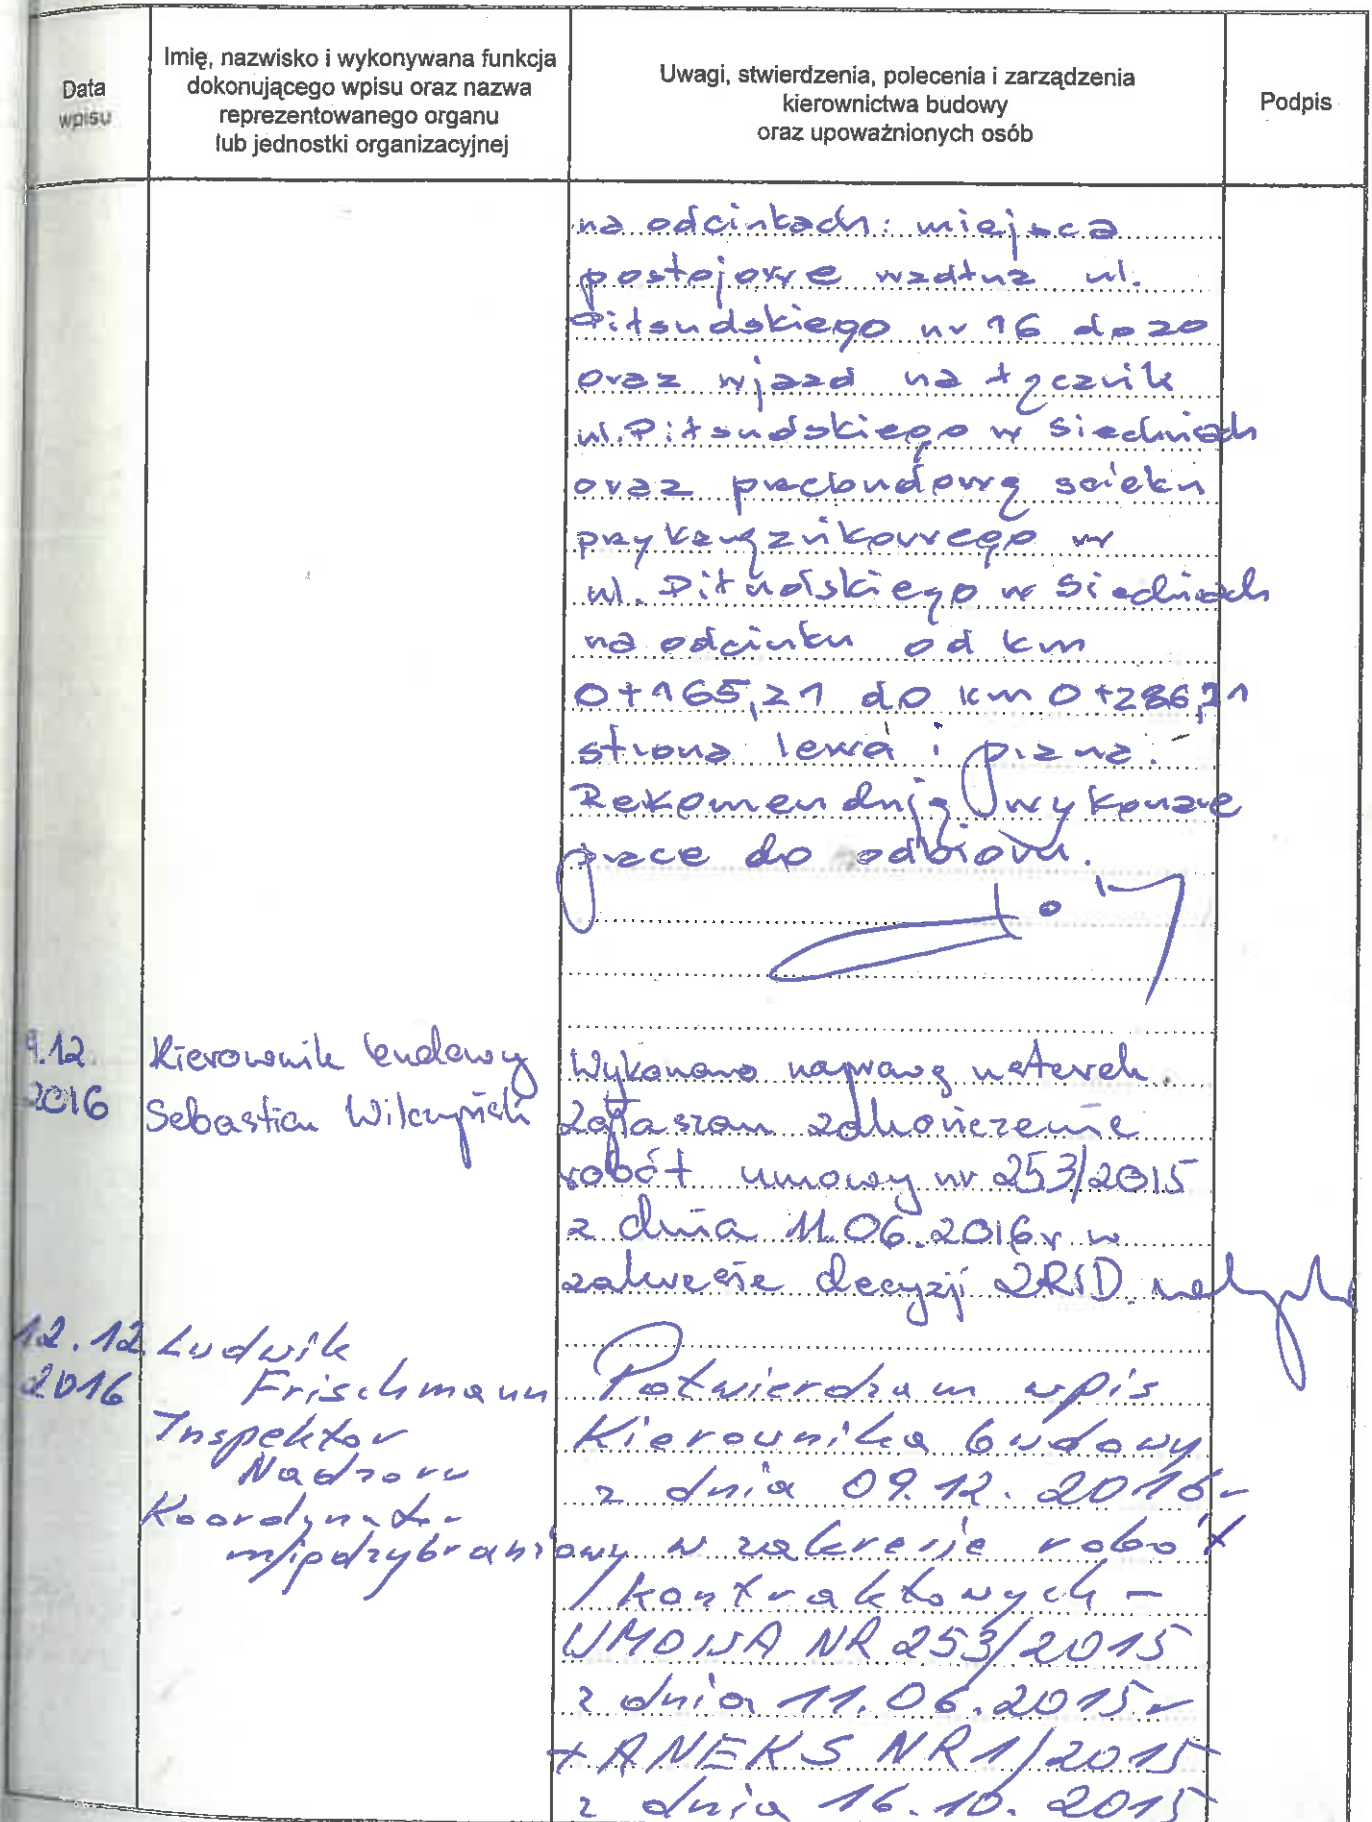 Data
wpisu
Imię, nazwisko i wykonywana funkcja
dokonującego wpisu oraz nazwa
reprezentowanego organu
lub jednostki organizacyjnej
Uwagi, stwierdzenia, polecenia i zarządzenia
kierownictwa budowy
oraz upoważnionych osób
Podpis
na odcinkach: miejsca
postojowe wzdłuż ul.
Piłsudskiego nr 16 do 20
oraz wjazd na łącznik
ul. Piłsudskiego w Siechnicach
oraz przebudowę ścieku
przykrawężnikowego w
ul. Piłsudskiego w Siechnicach
na odcinku od km
0+165,21 do km 0+286,21
strona lewa i prawa.
Rekomenduję wykonane
prace do odbioru.
9.12.
2016
Kierownik budowy
Sebastian Wilczyński
Wykonano naprawę usterek.
Zgłaszam zakończenie
robót umowy nr 253/2015
z dnia 11.06.2016r w
zakresie decyzji ZRID.
12.12.
2016
Ludwik
Frischmann
Inspektor
Nadzoru
Koordynator
międzybranżowy
Potwierdzam wpis
Kierownika budowy
z dnia 09.12.2016r
w zakresie robót
kontraktowych -
UMOWA NR 253/2015
z dnia 11.06.2015r
+ ANEKS NR 1/2015
z dnia 16.10.2015